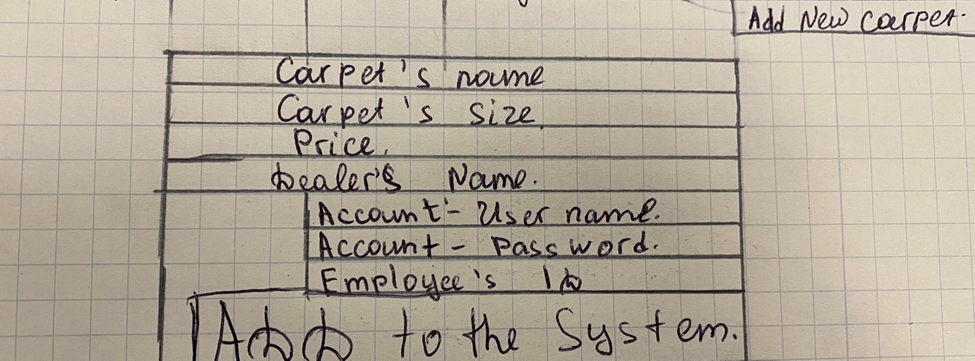 Add New carpet.
Carpet's name
Carpet's size
Price.
Dealer's Name.
Account - User name.
Account - Password.
Employee's ID
ADD to the System.